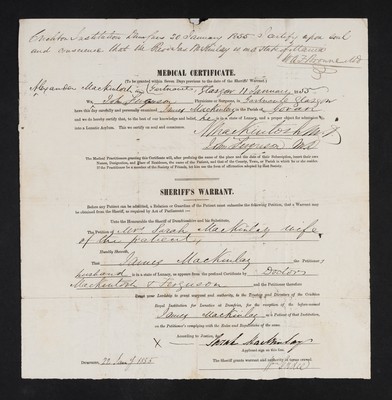 Crichton Institution Dumfries 30 January 1855 I certify upon soul
and conscience that Mr James McKinlay is in a state of Mania
MEDICAL CERTIFICATE.
(To be granted within Seven Days previous to the date of the Sheriff Warrant.)
Alexander Mackintosh Gartnavel, Glasgow 11 January 1855
We, John Ferguson Physician or Surgeon in Gartnavel Glasgow
have this day carefully and personally examined James Mackinlay in the Parish Govan
and we do hereby certify that, to the best of our knowledge and belief, he is in a state of lunacy, and a proper object for admission
into a Lunatic Asylum. This we certify on soul and conscience.
A Mackintosh M.D
John Ferguson M.D.
The Medical Practitioners granting this Certificate will, after prefixing the name of the place and the date of this Subscription, insert their own
Names, Designation, and Place of Residence, the name of the Patient, and that of the County, Town, or Parish in which he or she resides.
If the Practitioner be a member of the Society of Friends, let him use the form of affirmation adopted by that Society.
SHERIFF'S WARRANT.
Before any Patient can be admitted, a Relation or Guardian of the Patient must subscribe the following Petition, that a Warrant may
be obtained from the Sheriff, as required by Act of Parliament:—
Unto the Honourable the Sheriff of Dumfriesshire and his Substitutes,
The Petition of Mrs Sarah MacKinlay wife
of the patient,
Humbly Sheweth,
That James MacKinlay the Petitioner's
husband is in a state of Lunacy, as appears from the prefixed Certificate by Doctors
Mackintosh & Ferguson and the Petitioner therefore
Craves your Lordship to grant warrant and authority to the Trustees and Directors of the Crichton
Royal Institution for Lunatics at Dumfries, for the reception of the before-named
James Mackinlay as a Patient of that Institution,
on the Petitioner's complying with the Rules and Regulations of the same.
According to Justice, &c.
Sarah MacKinlay
Applicant sign on this line.
Dumfries, 22 Jany 1855
The Sheriff grants warrant and authority in terms craved.